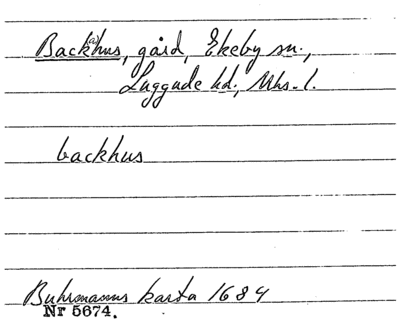 Backahus, gård, Ekeby sn.,
Luggude hd., Mhs. l.
backhus
Buhrmanns karta 1684
Nr 5674.